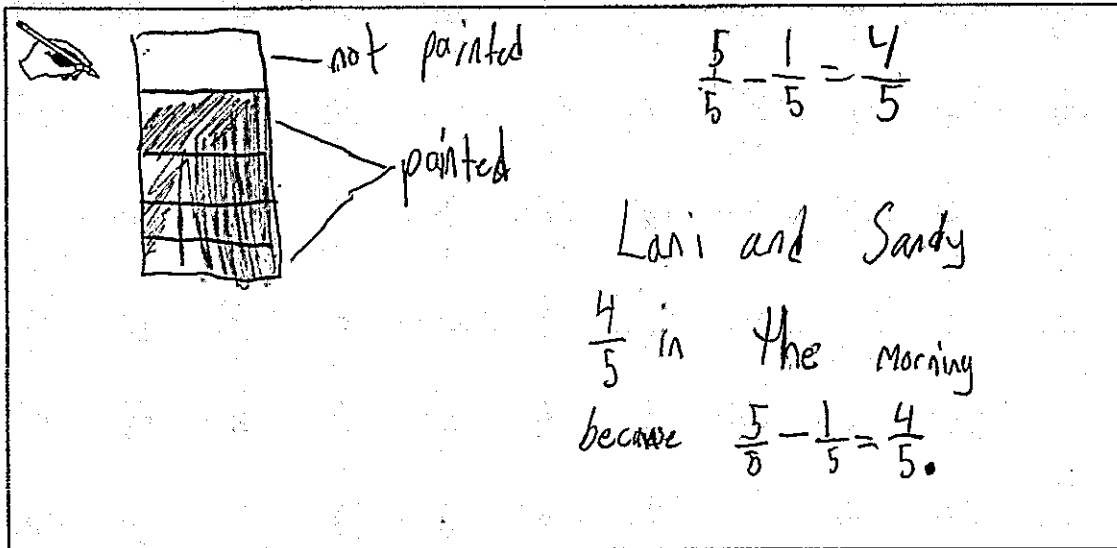 not painted
painted
5/5 - 1/5 = 4/5
Lani and Sandy
4/5 in the morning
because 5/5 - 1/5 = 4/5.